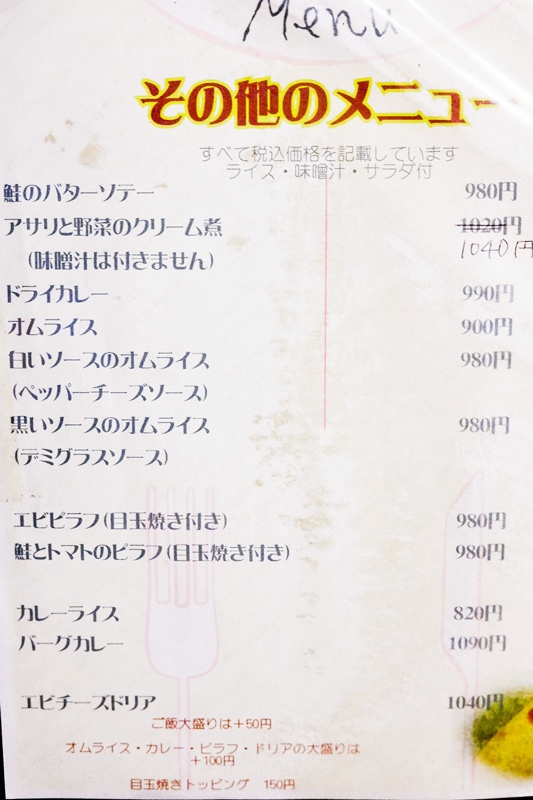 Menu
その他のメニュー
すべて税込価格を記載しています
ライス・味噌汁・サラダ付
鮭のバターソテー 980円
アサリと野菜のクリーム煮 1020円
(味噌汁は付きません) 1040円
ドライカレー 990円
オムライス 900円
白いソースのオムライス 980円
(ペッパーチーズソース)
黒いソースのオムライス 980円
(デミグラスソース)
エビピラフ(目玉焼き付き) 980円
鮭とトマトのピラフ(目玉焼き付き) 980円
カレーライス 820円
バーグカレー 1090円
エビチーズドリア 1040円
ご飯大盛りは+50円
オムライス・カレー・ピラフ・ドリアの大盛りは
+100円
目玉焼きトッピング 150円